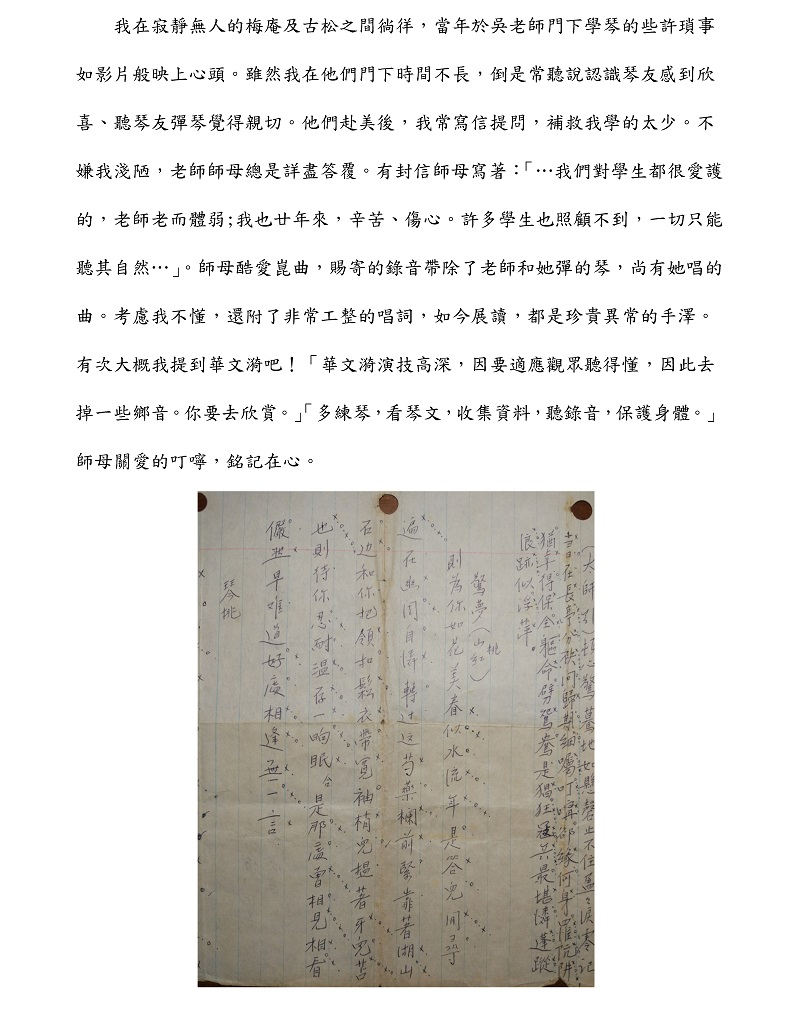 我在寂靜無人的梅庵及古松之間徜徉，當年於吳老師門下學琴的些許瑣事
如影片般映上心頭。雖然我在他們門下時間不長，倒是常聽說認識琴友感到欣
喜、聽琴友彈琴覺得親切。他們赴美後，我常寫信提問，補救我學的太少。不
嫌我淺陋，老師師母總是詳盡答覆。有封信師母寫著：「…我們對學生都很愛護
的，老師老而體弱;我也廿年來，辛苦、傷心。許多學生也照顧不到，一切只能
聽其自然…」。師母酷愛崑曲，賜寄的錄音帶除了老師和她彈的琴，尚有她唱的
曲。考慮我不懂，還附了非常工整的唱詞，如今展讀，都是珍貴異常的手澤。
有次大概我提到華文漪吧！「華文漪演技高深，因要適應觀眾聽得懂，因此去
掉一些鄉音。你要去欣賞。」「多練琴，看琴文，收集資料，聽錄音，保護身體。」
師母關愛的叮嚀，銘記在心。
當日在長亭心軟問歸期細囑叮嚀卻緣何早罹阬阱
猶幸得保全軀命劈鴛鴦是猖狂兵最堪憐蓬蹤
浪跡似浮萍
驚夢（山桃紅）
則為你如花美眷似水流年是答兒閒尋
遍在幽閨自憐轉過這芍藥欄前緊靠著湖山
石边和你把領扣鬆衣帶寬袖梢兒揾著牙兒苫
也則待你忍耐溫存一晌眠合是那處曾相見相看
儼然早難道好處相逢無一言
琴挑